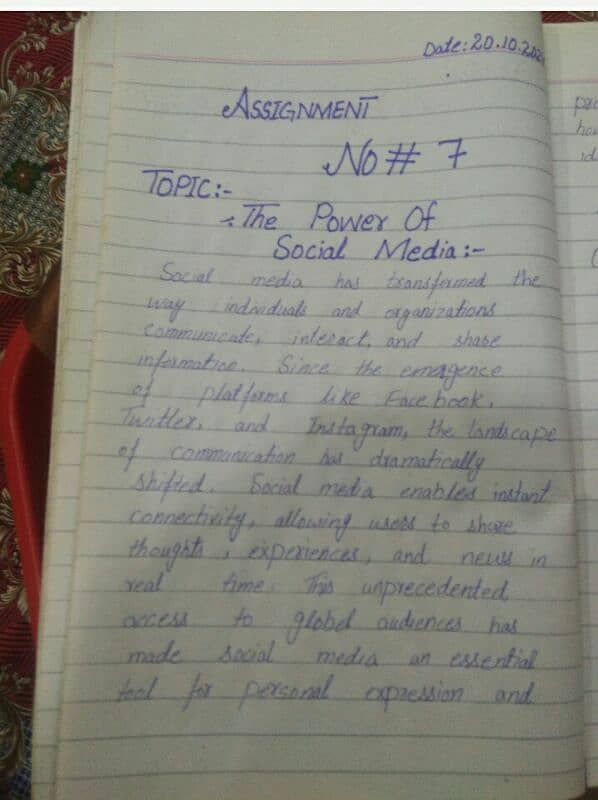 Date: 20.10.202
ASSIGNMENT
No # 7
TOPIC:-
The Power Of
Social Media:-
Social media has transformed the
way individuals and organizations
communicate, interact, and share
information. Since the emergence
of platforms like Facebook,
Twitter, and Instagram, the landscape
of communication has dramatically
shifted. Social media enables instant
connectivity, allowing users to share
thoughts, experiences, and news in
real time. This unprecedented
access to global audiences has
made social media an essential
tool for personal expression and